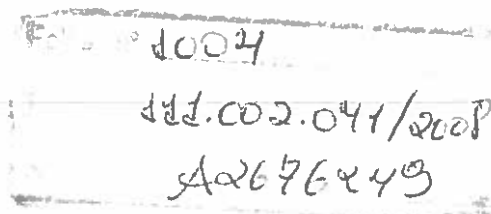 1004
111.002.041/2008
A2676249